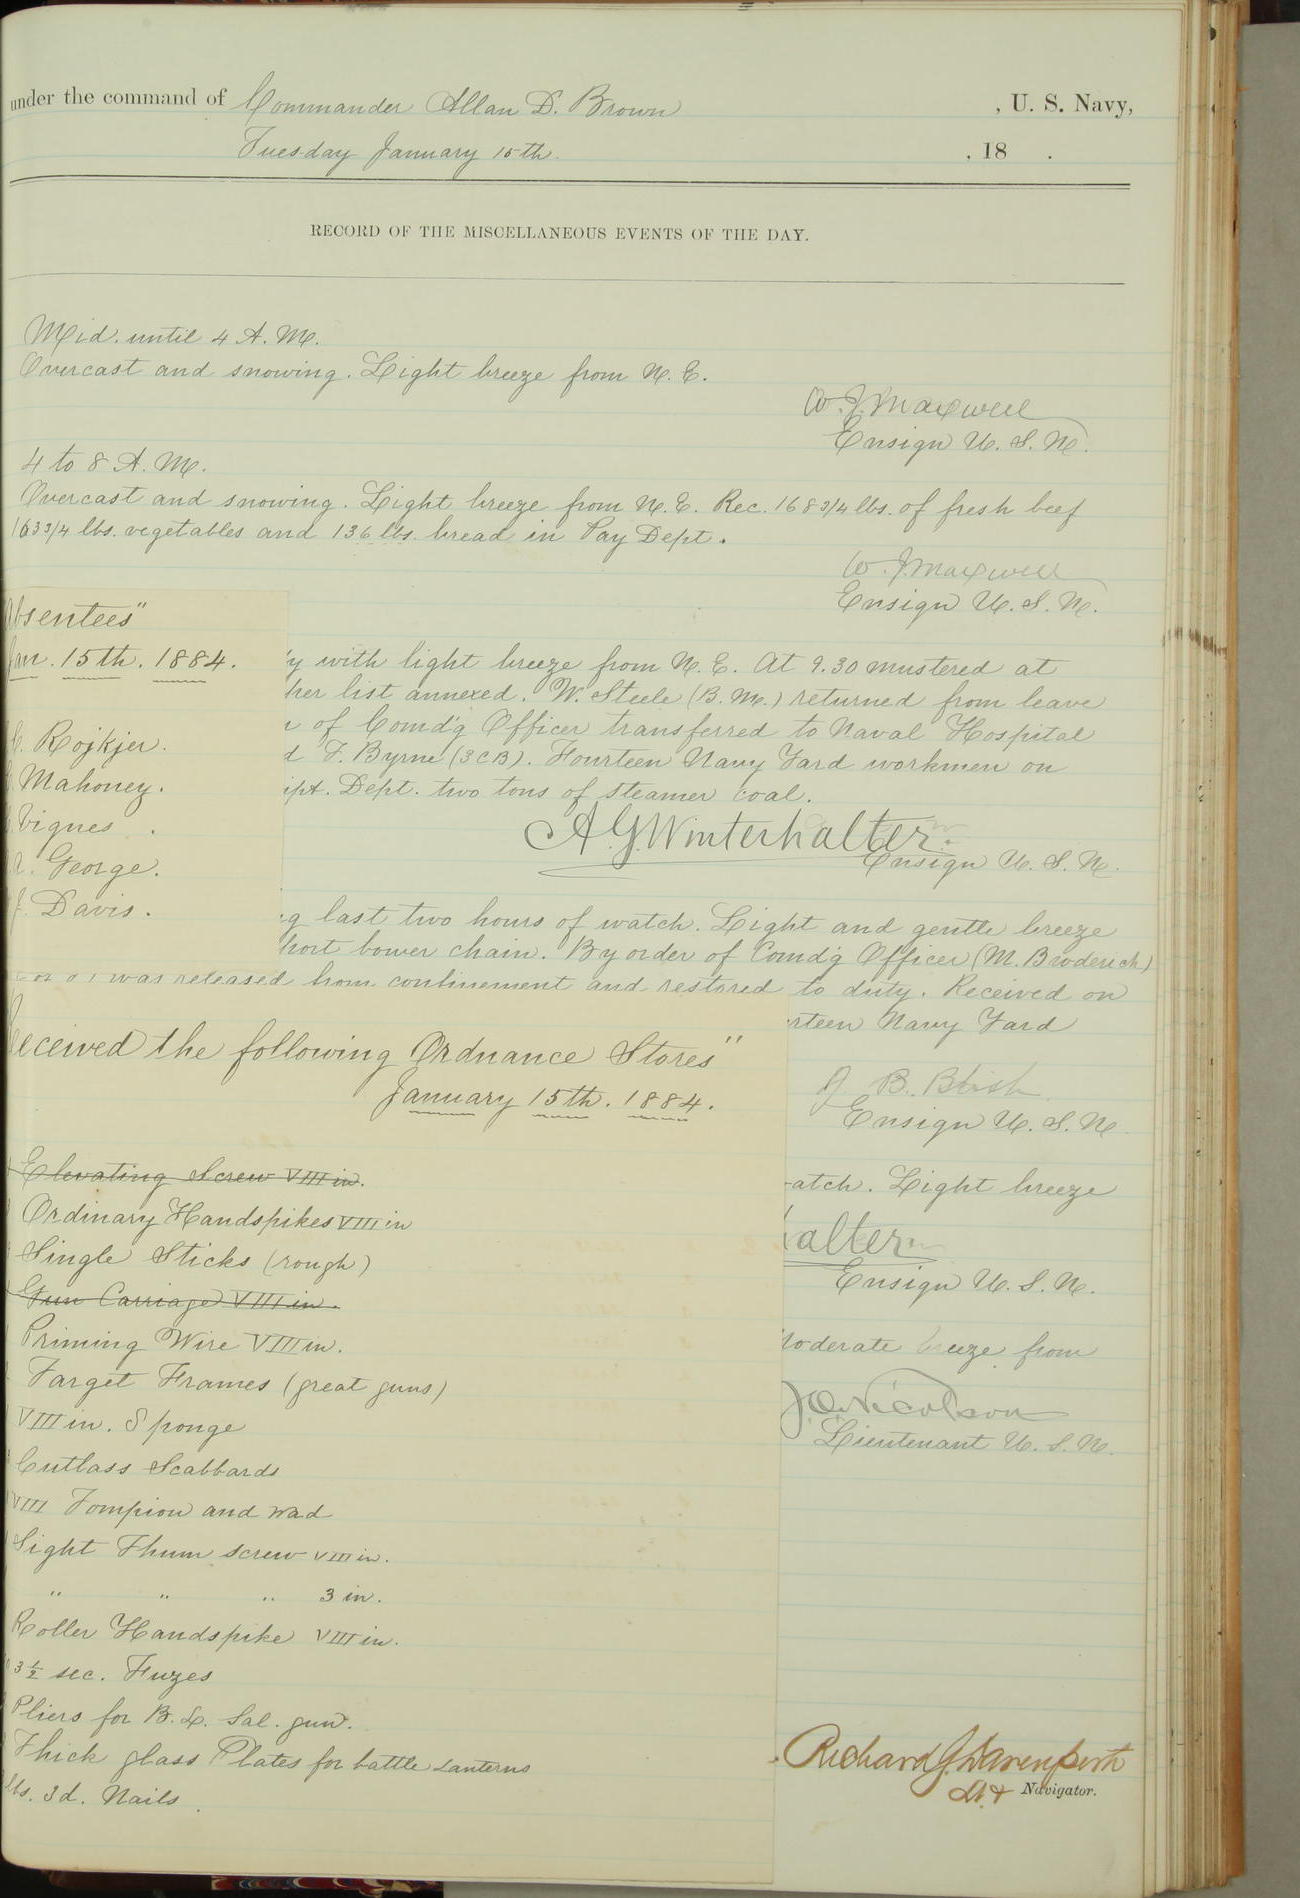 under the command of Commander Allan D. Brown , U. S. Navy,
Tuesday January 15th. , 18 .
RECORD OF THE MISCELLANEOUS EVENTS OF THE DAY.
Mid. until 4 A. M.
Overcast and snowing. Light breeze from N. E.
W. J. Maxwell
Ensign U. S. N.
4 to 8 A. M.
Overcast and snowing. Light breeze from N. E. Rec. 168 3/4 lbs. of fresh beef
163 3/4 lbs. vegetables and 136 lbs. bread in Pay Dept.
W. J. Maxwell
Ensign U. S. N.
Absentees"
Jan. 15th. 1884.
Rojkjer.
Mahoney.
Vignes.
George.
Davis.
y with light breeze from N. E. At 9.30 mustered at
her list annexed. W. Steele (B. M.) returned from leave
of Comd'g Officer transferred to Naval Hospital
d F. Byrne (3CB). Fourteen Navy Yard workmen on
Dept. two tons of steamer coal.
A. G. Winterhalter.
Ensign U. S. N.
g last two hours of watch. Light and gentle breeze
hort bower chain. By order of Comd'g Officer (M. Broderich)
was released from confinement and restored to duty. Received on
rteen Navy Yard
J. B. Blish
Ensign U. S. N.
atch. Light breeze
alter
Ensign U. S. N.
Moderate breeze from
J. O. Nicolson
Lieutenant U. S. N.
Received the following Ordnance Stores"
January 15th. 1884.
Elevating Screw VIII in.
Ordinary Handspikes VIII in
Single Sticks (rough)
Gun Carriage VIII in.
Priming Wire VIII in.
Target Frames (great guns)
VIII in. Sponge
Cutlass Scabbards
VIII Tompion and wad
Sight Thum screw VIII in.
" " " 3 in.
Roller Handspike VIII in.
3 1/2 sec. Fuzes
Pliers for B. L. Sal. gun.
Thick glass Plates for battle Lanterns
lbs. 3d. Nails.
Richard G. Davenport
Lt Navigator.